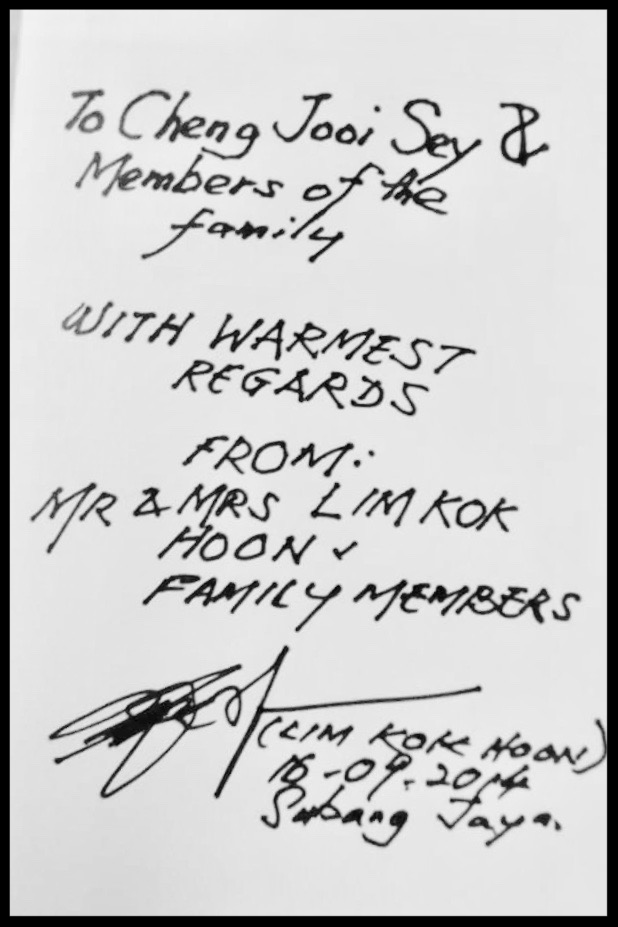 To Cheng Jooi Sey &
Members of the
family
WITH WARMEST
REGARDS
FROM:
MR & MRS LIM KOK
HOON ✓
FAMILY MEMBERS
(LIM KOK HOON)
16-09.2014
Subang Jaya.